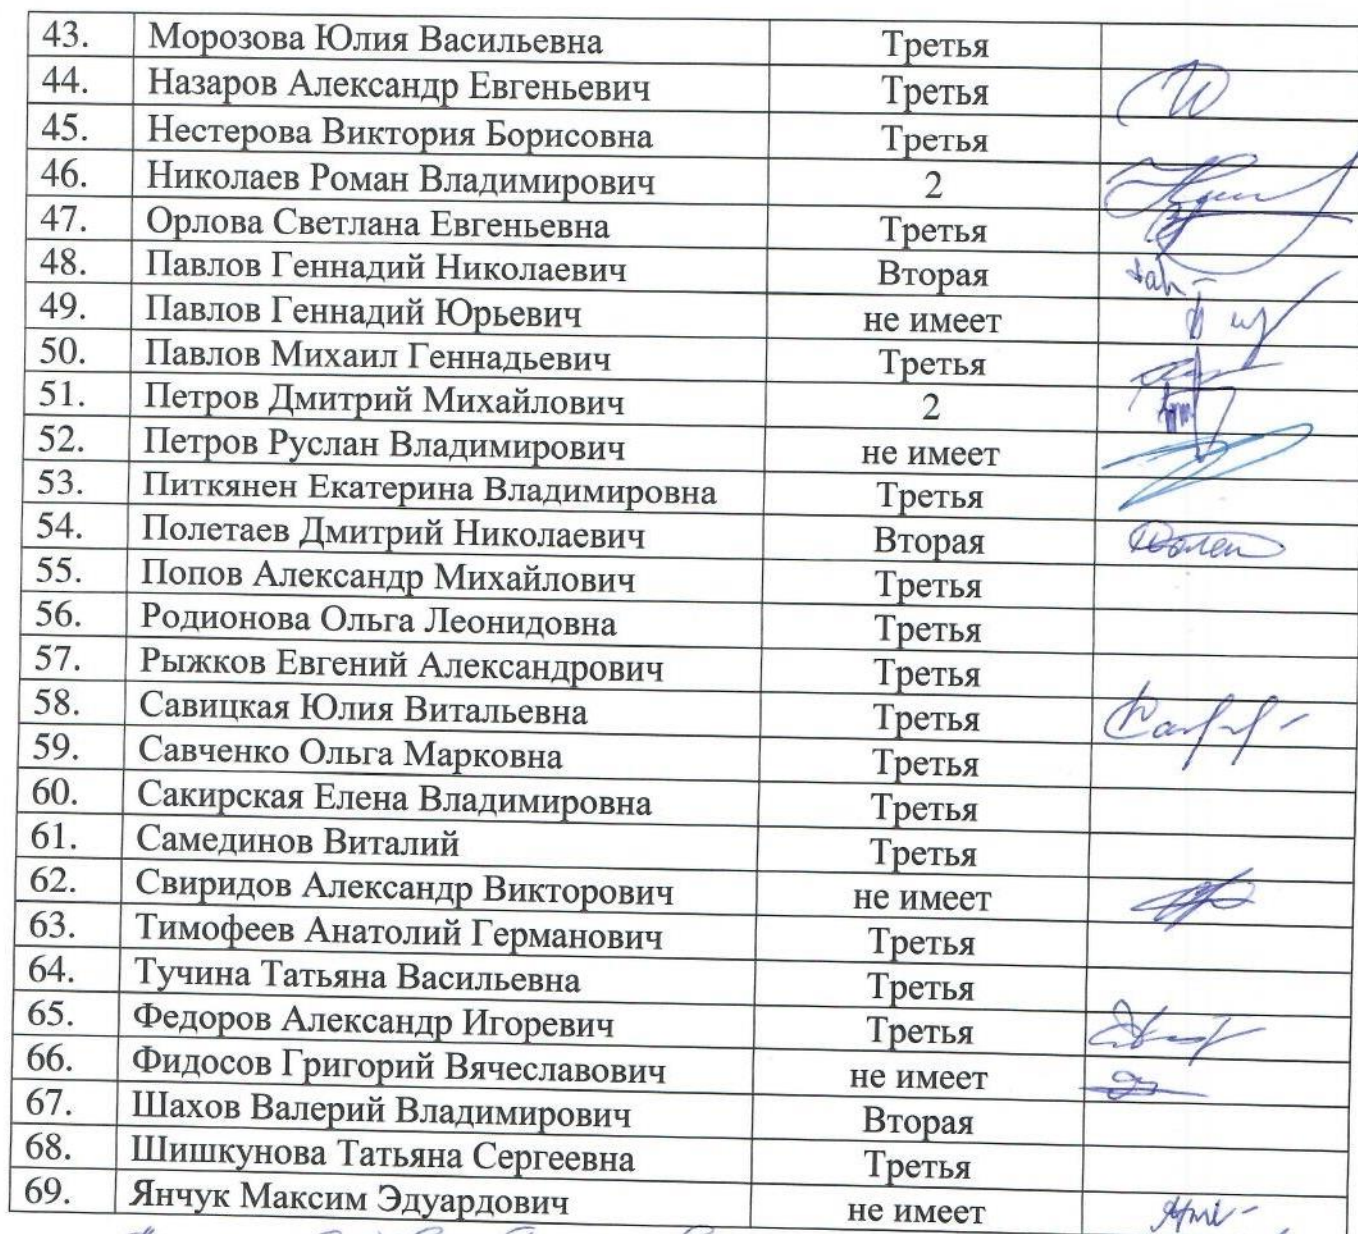 43. Морозова Юлия Васильевна Третья
44. Назаров Александр Евгеньевич Третья
45. Нестерова Виктория Борисовна Третья
46. Николаев Роман Владимирович 2
47. Орлова Светлана Евгеньевна Третья
48. Павлов Геннадий Николаевич Вторая
49. Павлов Геннадий Юрьевич не имеет
50. Павлов Михаил Геннадьевич Третья
51. Петров Дмитрий Михайлович 2
52. Петров Руслан Владимирович не имеет
53. Питкянен Екатерина Владимировна Третья
54. Полетаев Дмитрий Николаевич Вторая
55. Попов Александр Михайлович Третья
56. Родионова Ольга Леонидовна Третья
57. Рыжков Евгений Александрович Третья
58. Савицкая Юлия Витальевна Третья
59. Савченко Ольга Марковна Третья
60. Сакирская Елена Владимировна Третья
61. Самединов Виталий Третья
62. Свиридов Александр Викторович не имеет
63. Тимофеев Анатолий Германович Третья
64. Тучина Татьяна Васильевна Третья
65. Федоров Александр Игоревич Третья
66. Фидосов Григорий Вячеславович не имеет
67. Шахов Валерий Владимирович Вторая
68. Шишкунова Татьяна Сергеевна Третья
69. Янчук Максим Эдуардович не имеет